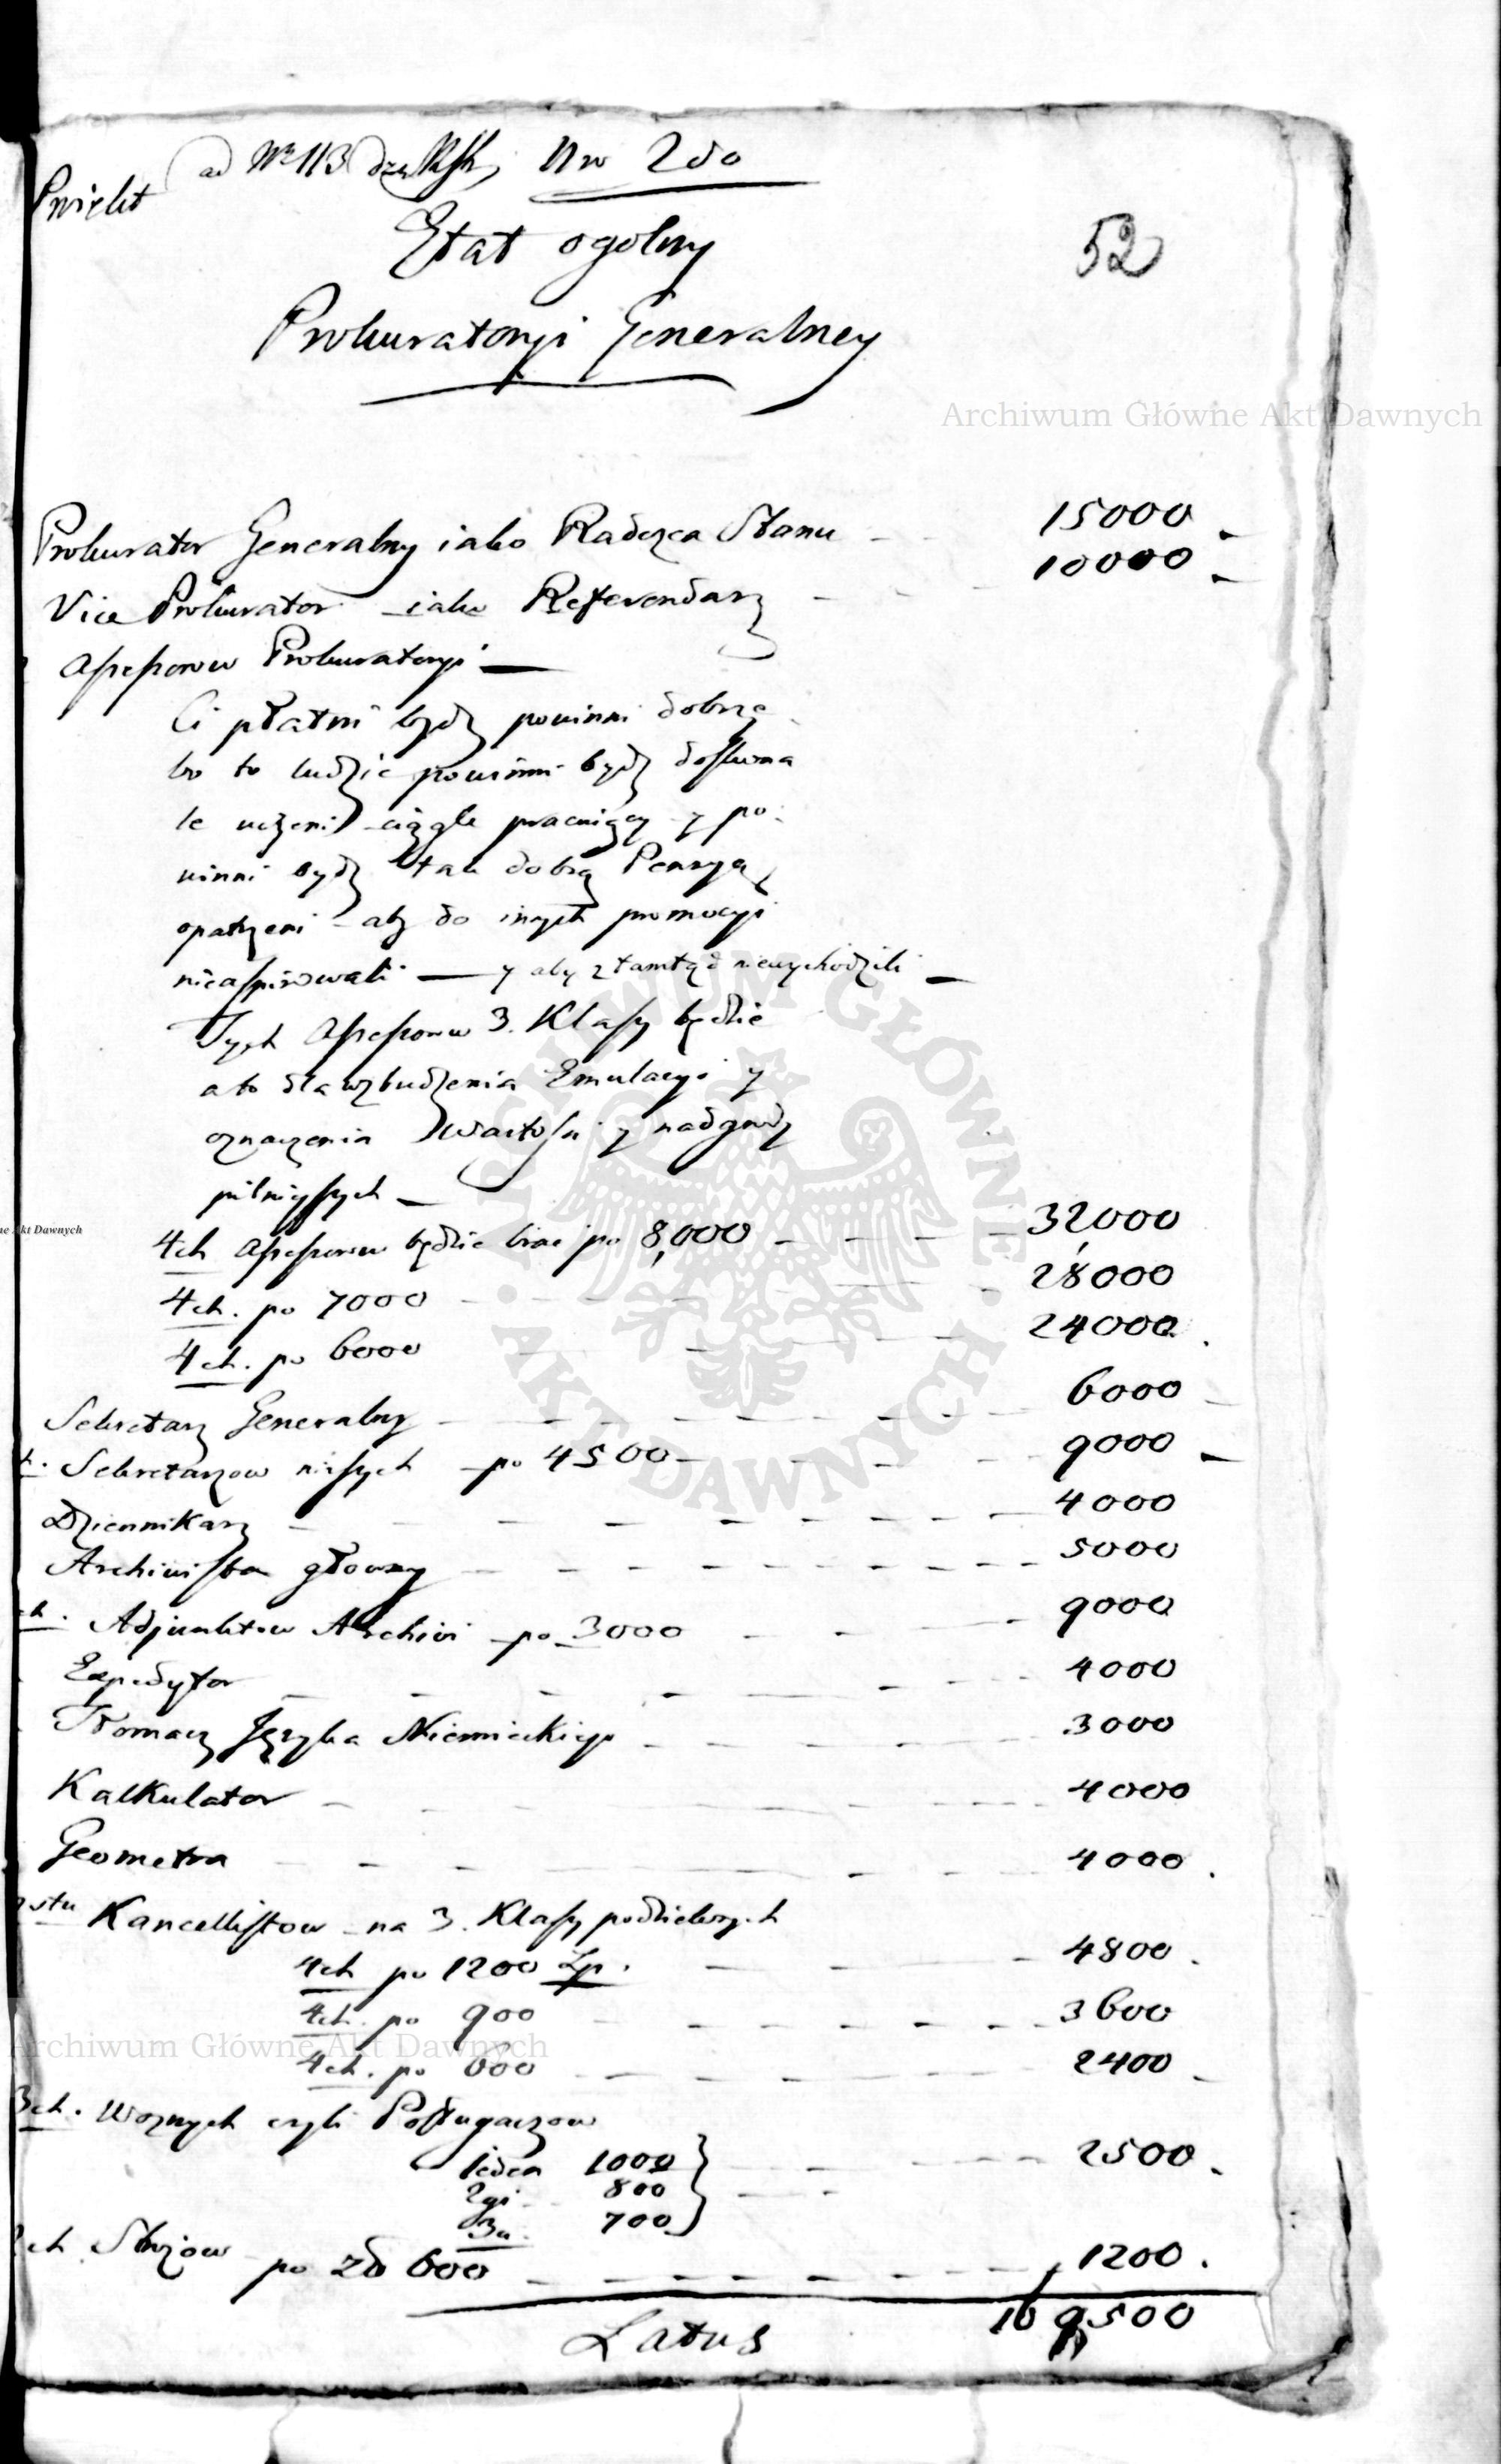 Proiekt
ad Nr 113 Nro 2do
52
Etat ogolny
Prokuratoryi Generalney
Archiwum Główne Akt Dawnych
Prokurator Generalny iako Radzca Stanu - - 15000
Vice Prokurator iako Referendarz - - - 10000
Assessorow Prokuratoryi —
Ci płatni bydź powinni dobrze
bo to ludzie powinni bydź doskona
le uczeni ciągle pracuiący y po:
winni bydź tak dobrą Pensyą
opatrzeni aby do inych promocyi
nieaspirowali — y aby ztamtąd niewychodzili —
Tych Assessorow 3. Klassy będzie
a to dla wzbudzenia Emulacyi y
oznaczenia Wartosci y nadgrody
pilnieyszych —
4ch Assessorow będzie brac po 8,000 - - - 32,000
4ch. po 7000 - - - 28000
4ch. po 6000 - - - 24000.
Sekretarz Generalny - - - 6000
Sekretarzow niższych po 4500 - - - 9000
Dziennikarz - - - 4000
Archiwista głowny - - - 5000
ch. Adjunktow Archiwi po 3000 - - - 9000
Expedytor - - - 4000
Tłomacz Języka Niemieckiego - - - 3000
Kalkulator - - - 4000
Geometra - - - 4000.
stu Kancellistow na 3. Klassy podzielonych
4ch po 1200 Zp. - - - 4800.
4ch. po 900 - - - 3600
4ch. po 600 - - - 2400
3ch. Woznych czyli Posługaczow
ieden 1000 - - - 2500.
2gi 800
3ci 700
ch Strożow po zł 600 - - - 1200.
Latus 169500
ARCHIWUM GŁÓWNE · AKT DAWNYCH ·
ne Akt Dawnych
Archiwum Główne Akt Dawnych